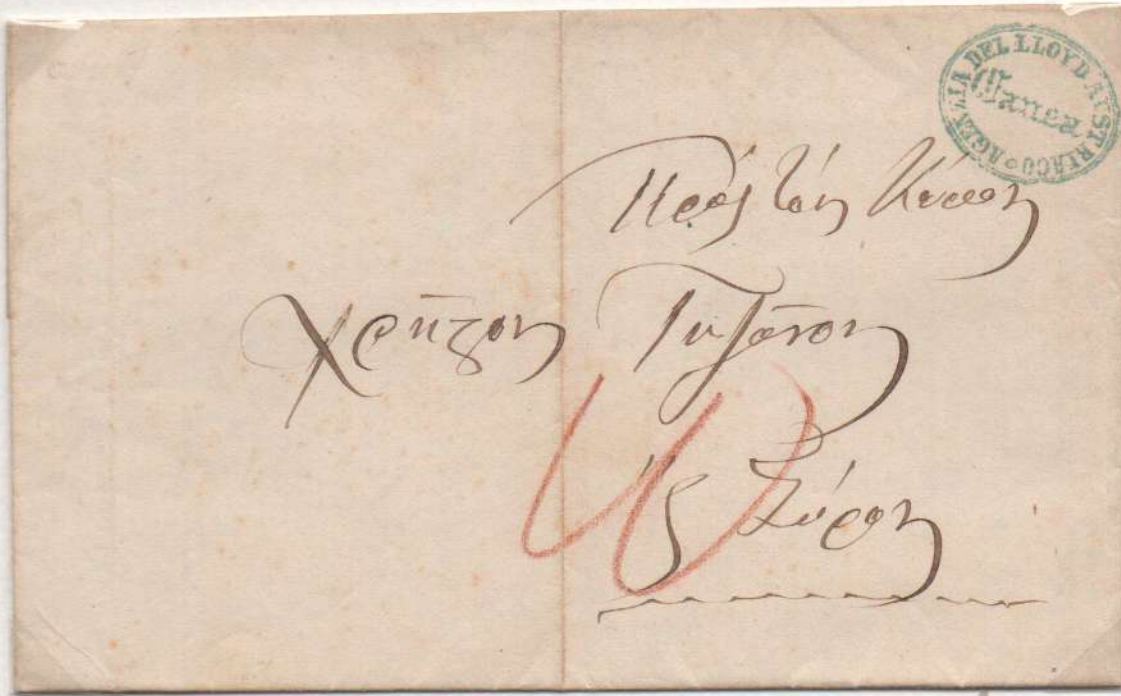 AGENZIA DEL LLOYD AUSTRIACO
Canea
Πρὸς τὸν Κύριον
Χρῆστον
εἰς Σύρον